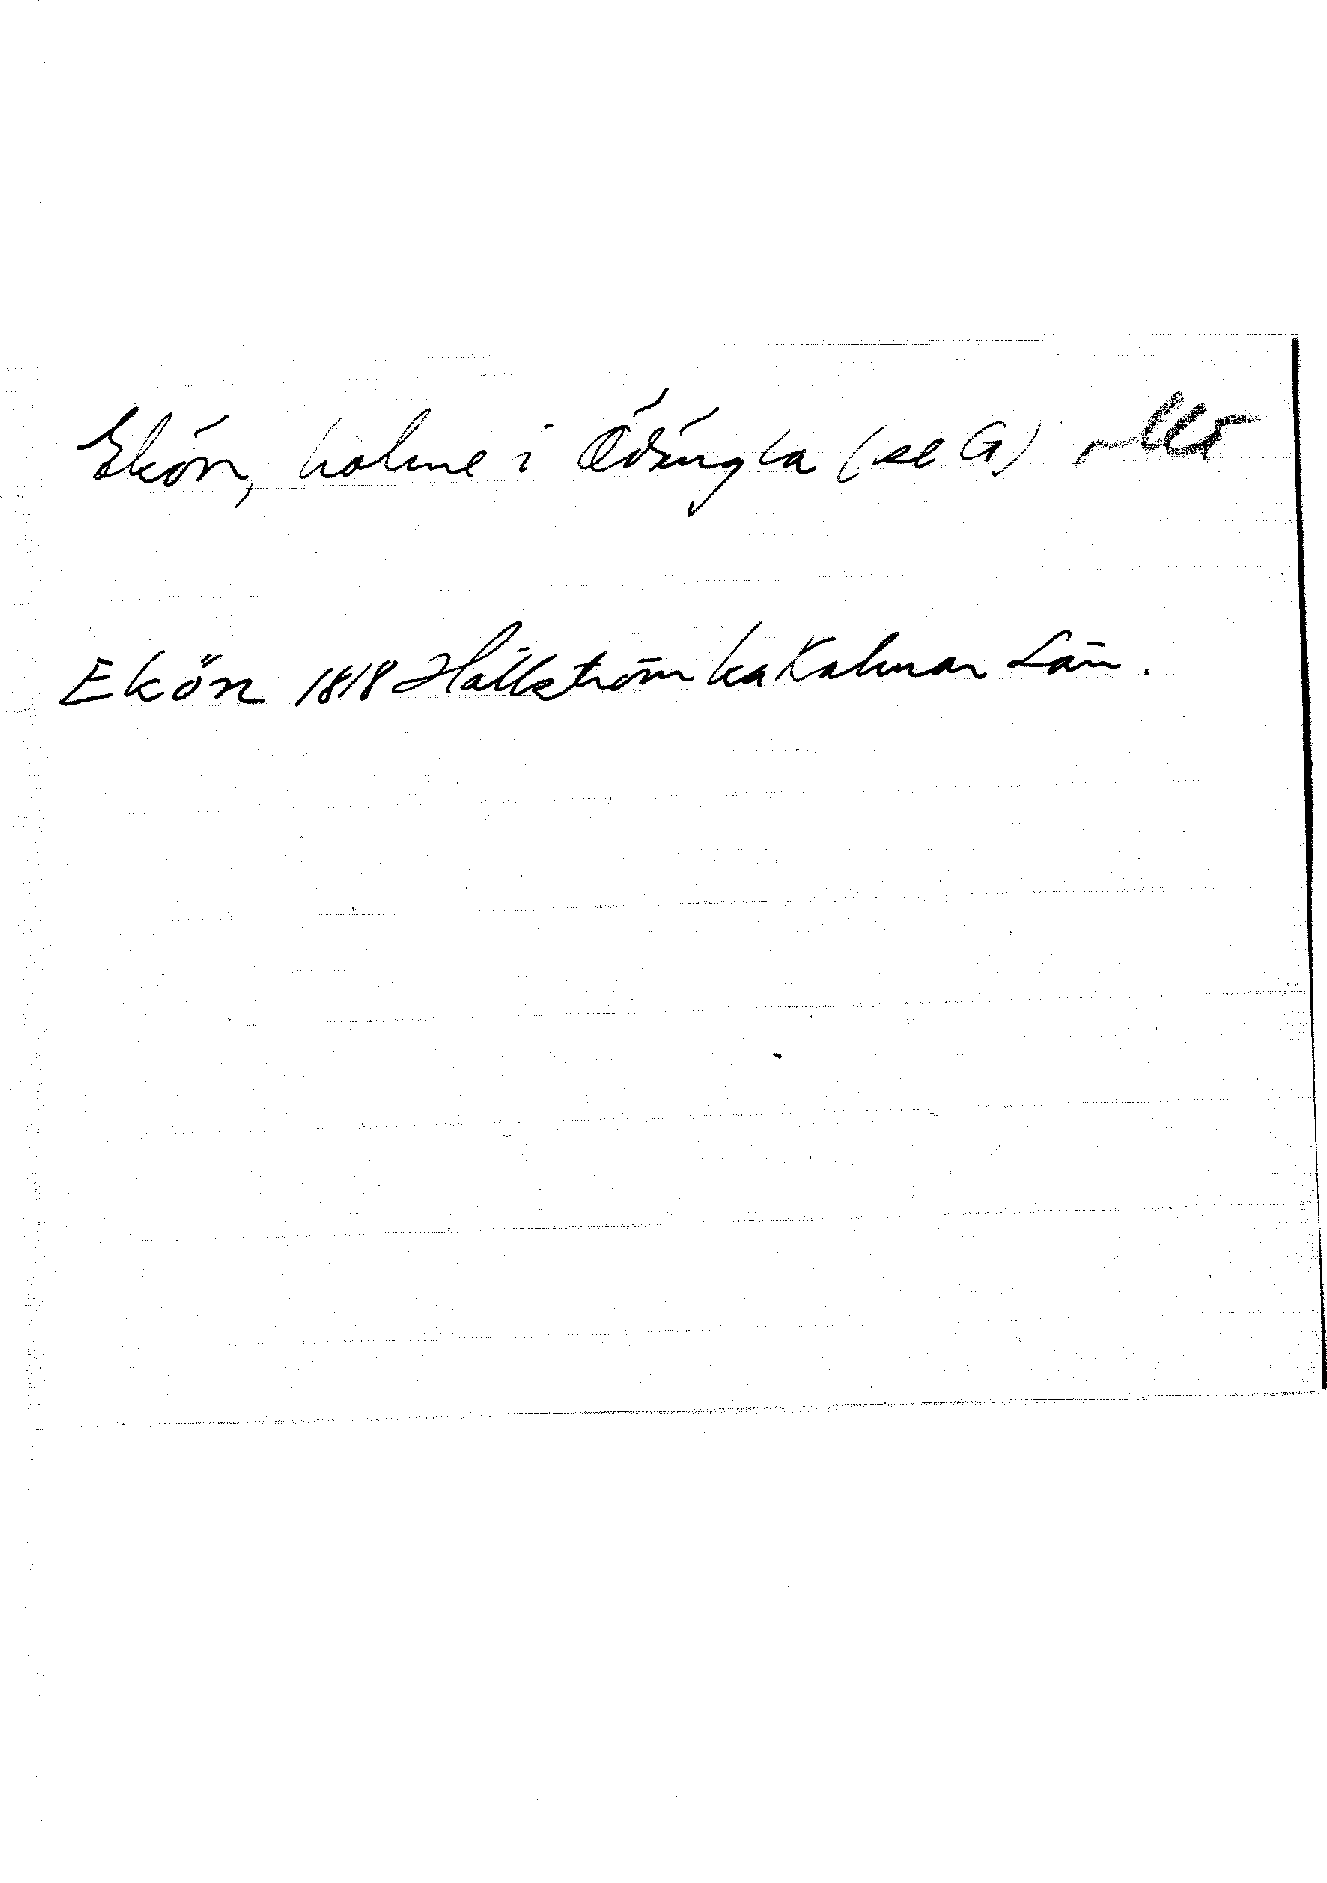 Ekön, holme i Ödängla (se G)
Ekön 1818 Hällström ka Kalmar Län.